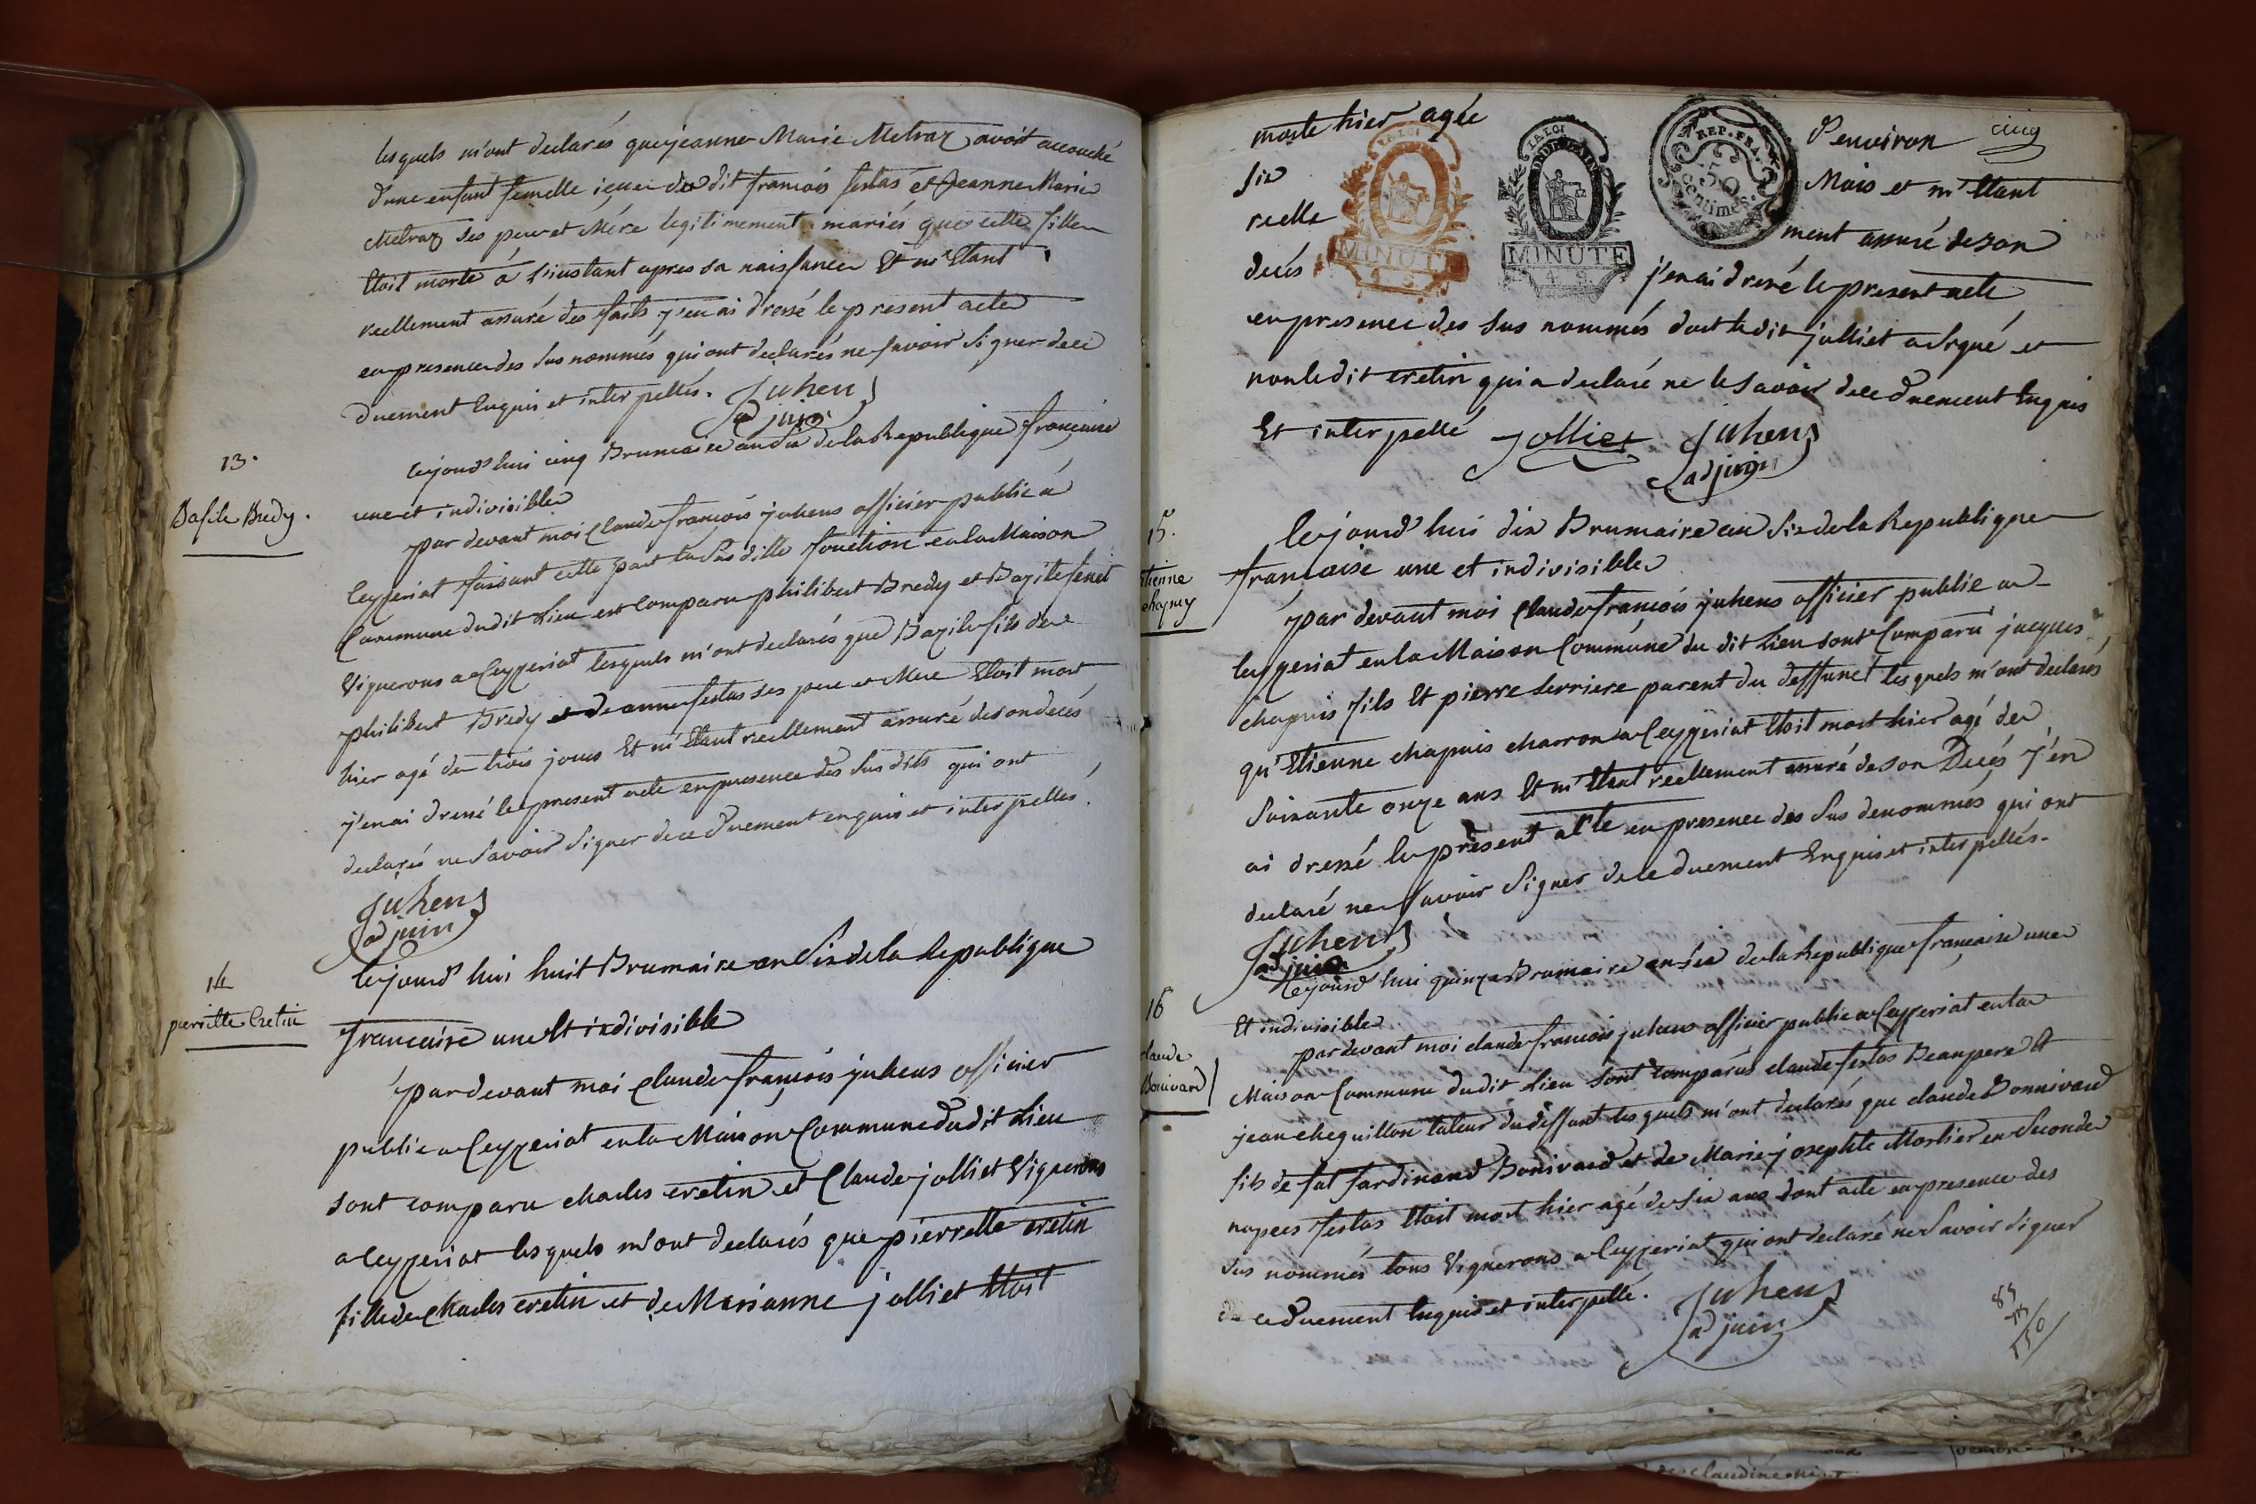 lesquels m'ont declarés que jeanne Marie Metraz avoit accouché
d'une enfant femelle icelle du dit francois festas et Jeanne Marie
Metraz ses pere et Mére legitimement mariés que cette fille
Etoit morte á l'instant apres sa naissance Et m'Etant
reellement assuré des faits j'en ai dressé le present acte
en presence des sus nommés qui ont declarés ne savoir signer de ce
duement Enquis et interpellés. Juhen
adjuin
13.
Basile Bredy.
Cejourd'hui cinq Brumaire an six de la Republique francaise
une et indivisible
par devant moi Claude françois juhens officier public á
Ceyzeriat faisant cette part la susditte fonction en la Maison
Commune dudit Lieu est Comparu philibert Bredy et Bazile
Vignerons a Ceyzeriat lesquels m'ont declarés que Bazile fils de
philibert Bredy et de anne festas ses pere et Mere Etoit mort
hier agé de trois jours Et m'Etant reellement assuré de son decés
j'en ai dressé le present acte en presence des susdits qui ont
declarés ne savoir signer de ce duement enquis et interpellés.
Juhen
adjuin
14
pierrette Cretin
Cejourd'hui huit Brumaire an six de la Republique
francaise une Et indivisible
par devant moi Claude françois juhens officier
public a Ceyzeriat en la Maison Commune dudit Lieu
sont comparu charles cretin et Claude jolliet Vignerons
a Ceyzeriat lesquels m'ont declarés que pierrette cretin
fille de charles cretin et de Marianne jolliet Etoit
morte hier agée d'environ cinq
six Mois et m'Etant
reelle ment assuré de son
decés j'en ai dressé le present acte
LA LOI
MINUTE
LA LOI
MINUTE
REP. FRA.
50
centimes.
en presence des sus nommés dont le dit jolliet a signé et
non le dit cretin qui a declaré ne le savoir de ce duement Enquis
Et interpellé Jolliet Juhen
adjuin
15.
Etienne
chapuy
Cejourd'hui dix Brumaire an six de la Republique
francaise une et indivisible
par devant moi Claude françois juhens officier public a
Ceyzeriat en la Maison Commune du dit Lieu sont Comparu jacques
chapuis fils Et pierre Serriere parent du deffunct lesquels m'ont declarés
qu'Etienne chapuis charron a Ceyzeriat Etoit mort hier agé de
soixante onze ans Et m'Etant reellement assuré de son Decés j'en
ai dressé le present acte en presence des sus denommés qui ont
declaré ne savoir signer de ce duement Enquis et interpellés.
Juhen
adjuin
16
Claude
Bonivard
Cejourd'hui quinze Brumaire an six de la Republique francaise une
Et indivisible
par devant moi claude francois juhens officier public a Ceyzeriat en la
Maison Commune du dit Lieu sont comparus claude festas Beaupere Et
jean cheguillon tuteur du deffunt lesquels m'ont declarés que claude Bonnivard
fils de fut fardinand Bonivard et de Marie josephte Mortier en seconde
nopces festas Etoit mort hier agé de six ans dont acte en presence des
sus nommés tous Vignerons a Ceyzeriat qui ont declaré ne savoir signer
de ce duement Enquis et interpellé. Juhen
adjuin